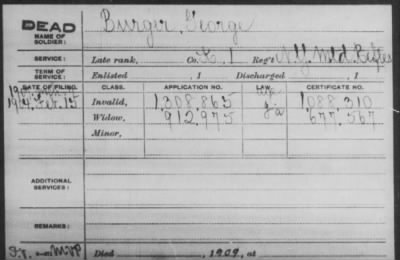 DEAD
NAME OF SOLDIER: Burger, George
SERVICE: Late rank, Co. 1 Reg't N.Y. Mtd. Rifles
TERM OF SERVICE: Enlisted , 1 Discharged , 1
DATE OF FILING. CLASS. APPLICATION NO. LAW. CERTIFICATE NO.
Invalid, 1,308,865 1,088,310
Widow, 912,975 677,567
Minor,
ADDITIONAL SERVICES:
REMARKS:
MVP Died , 1909, at